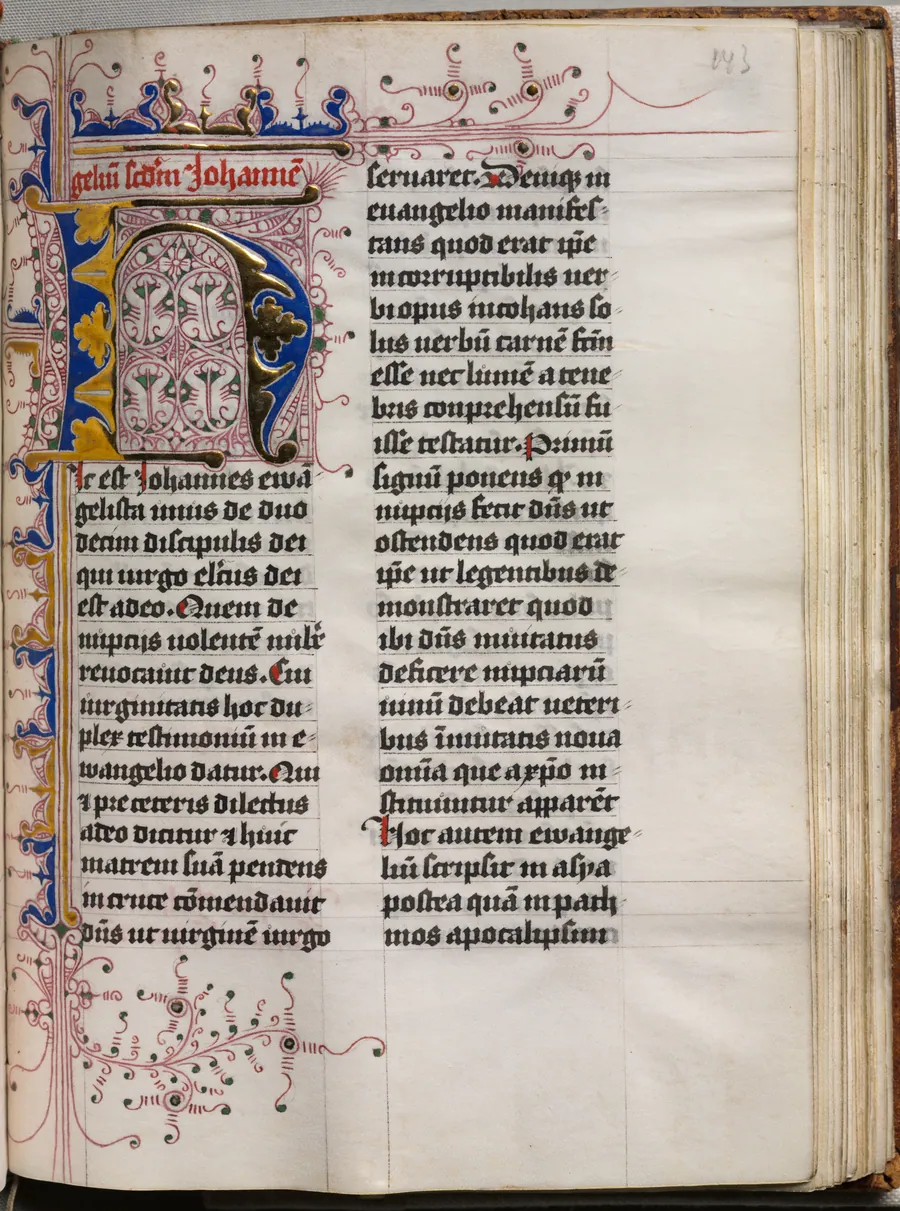 143
geliū scdm Johannē
H
Ic est Johannes ewā
gelista unus de duo
decim discipulis dei
qui uirgo elctus dei
est adeo. Quem de
nuptijs uolentē nube
reuocauit deus. Cui
uirginitatis hoc du
plex testimoniū in e
wangelio datur. Qui
⁊ pre ceteris dilectus
adeo dicitur ⁊ huic
matrem suā pendens
in cruce cōmendauit
dn̄s ut uirginē uirgo
seruaret. Deniqꝫ in
euangelio manifes
tans quod erat ip̄e
incorruptibilis uer
bi opus incohans so
lus uerbū carnē fcm̄
esse nec lumē a tene
bris conprehensū fu
isse testatur. Primū
signū ponens qd in
nuptijs fecit dn̄s ut
ostendens quod erat
ip̄e ut legentibus de
monstraret quod
ibi dn̄s inuitatus
deficere nuptiarū
uinū debeat ueteri
bus īmutatis noua
omīa que a xp̄o in
stituuntur apparēt
Hoc autem ewange
liū scripsit in asya
postea quā in path
mos apocalipsim